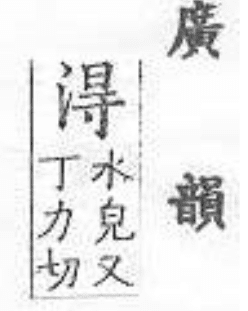 廣韻
淂
水皃又
丁力切